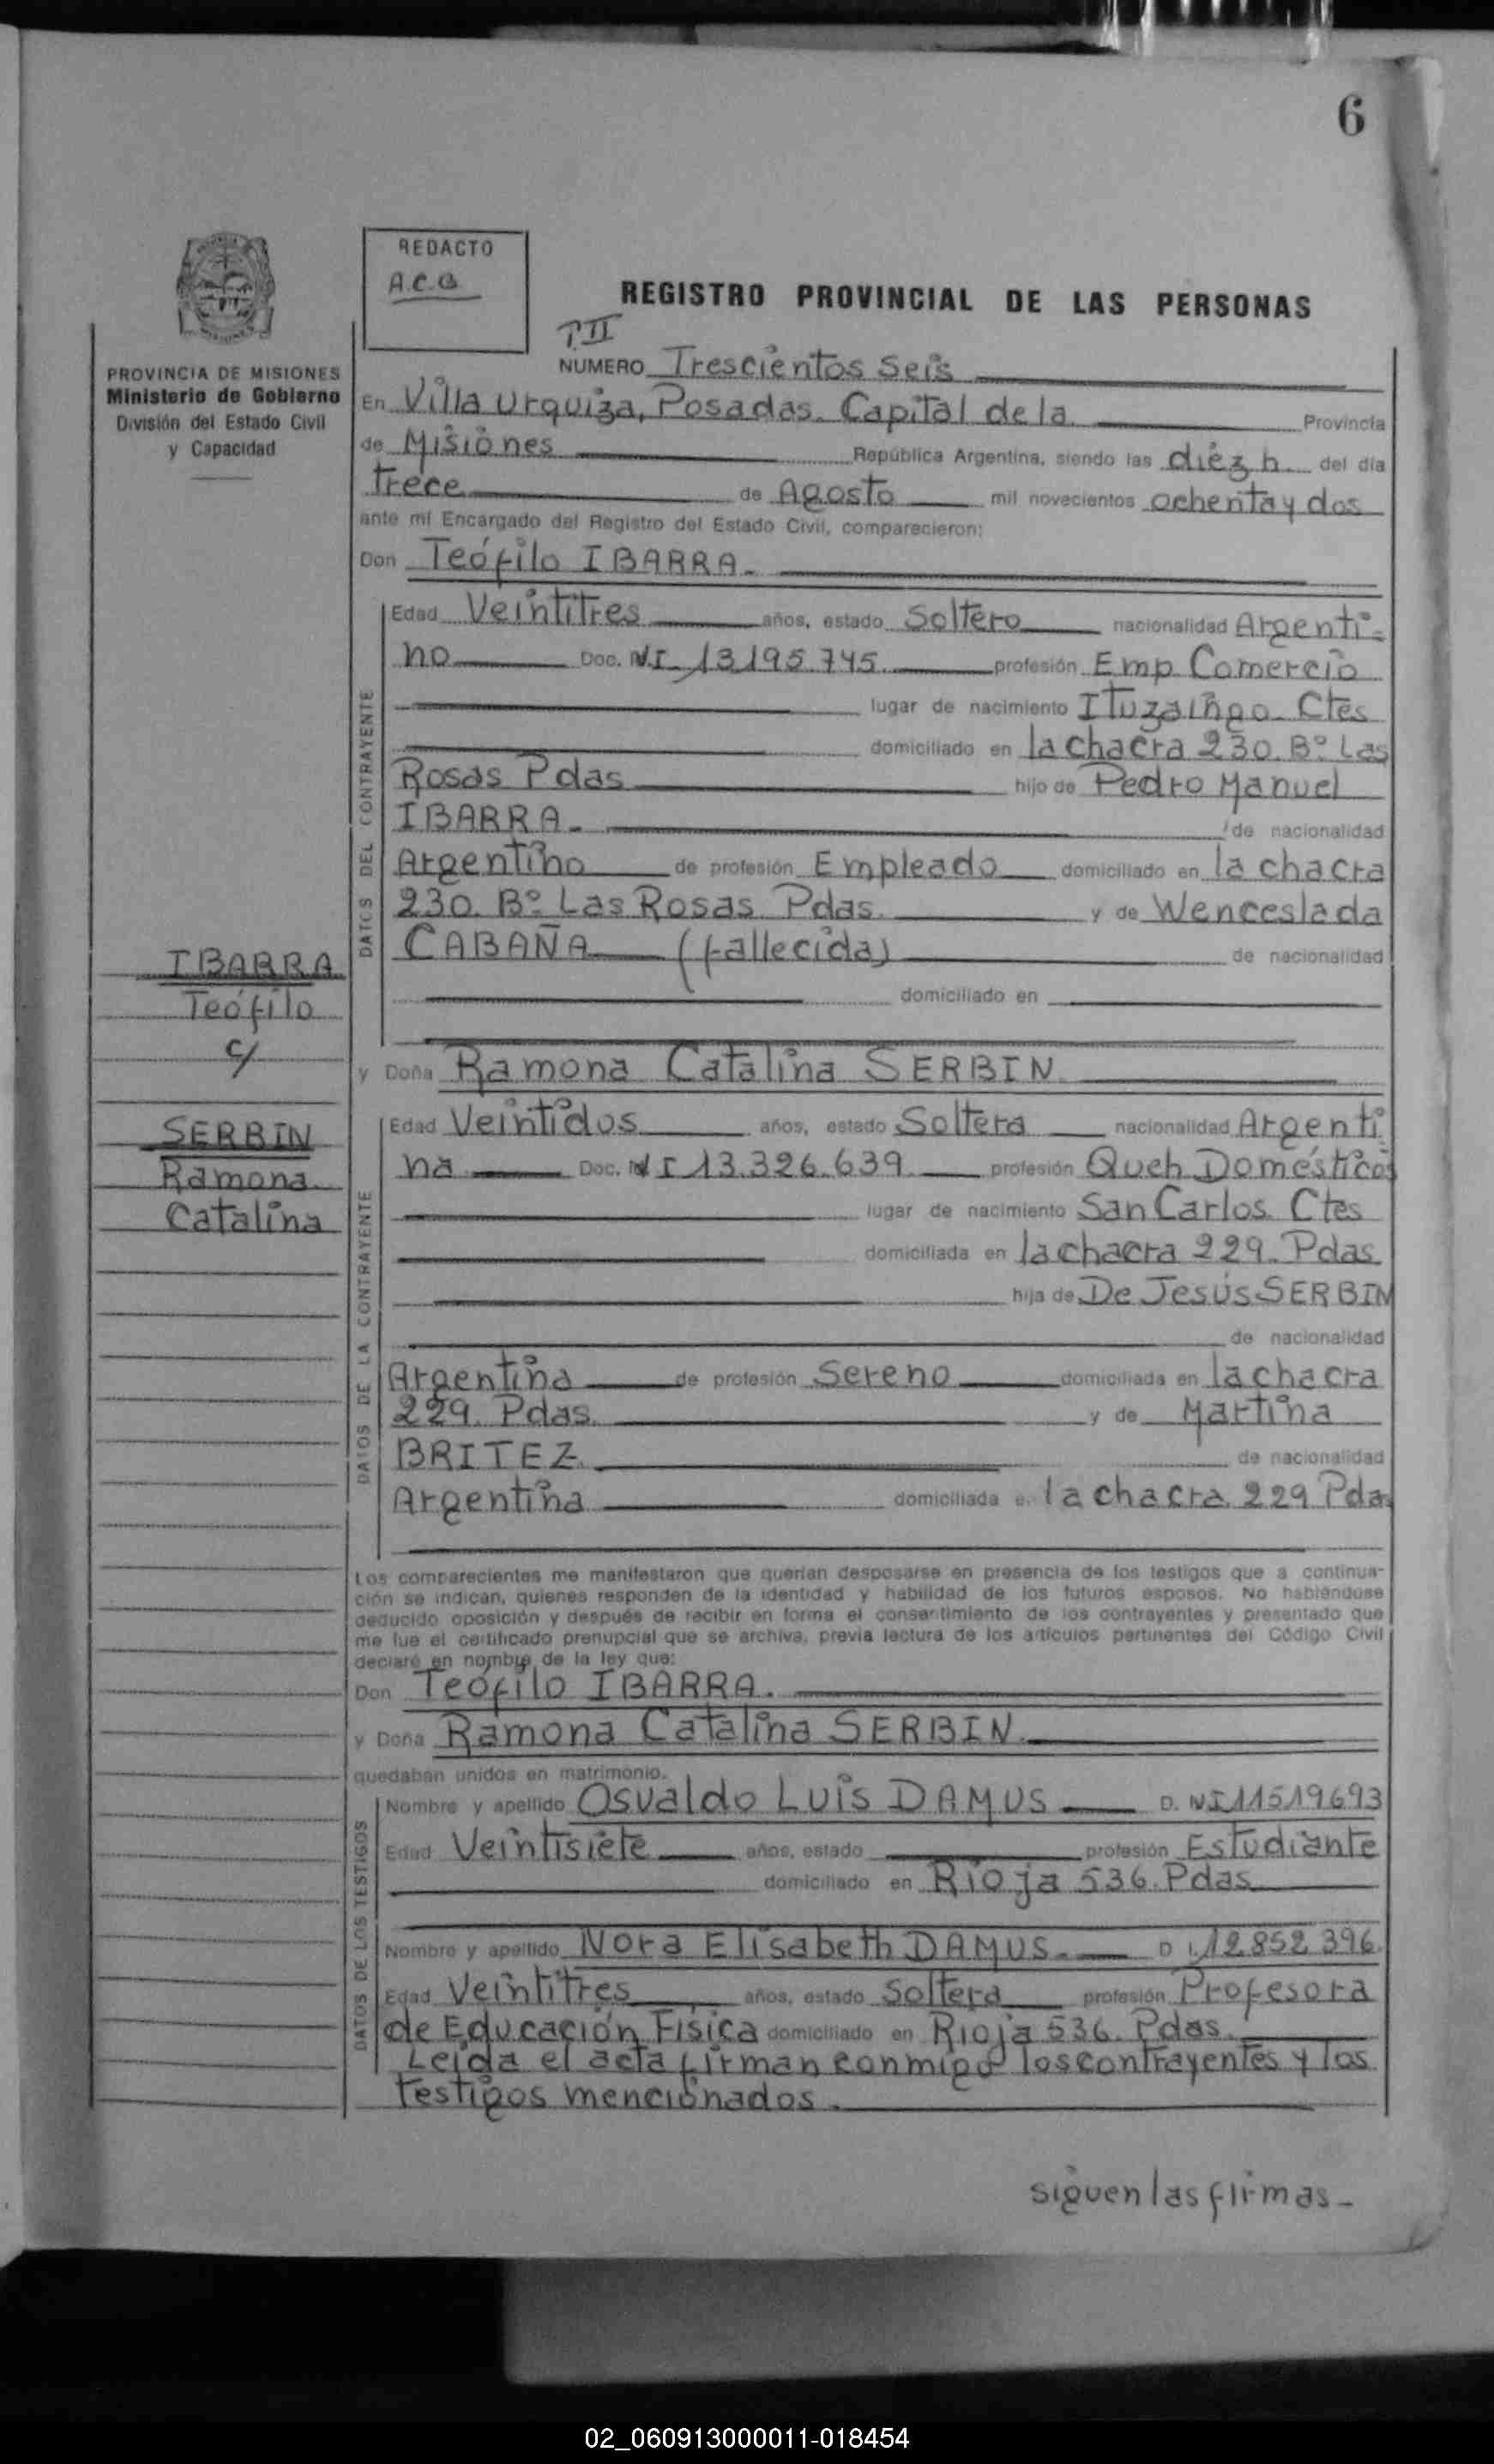 6
REDACTO
A.C.G
REGISTRO PROVINCIAL DE LAS PERSONAS
PROVINCIA DE MISIONES
Ministerio de Gobierno
División del Estado Civil
y Capacidad
T.II
NUMERO Trescientos Seis
En Villa Urquiza, Posadas. Capital de la Provincia
de Misiones República Argentina, siendo las diez h. del día
trece de Agosto mil novecientos ochenta y dos
ante mí Encargado del Registro del Estado Civil, comparecieron:
Don Teófilo IBARRA.
DATOS DEL CONTRAYENTE
Edad Veintitres años, estado Soltero nacionalidad Argenti-
no Doc. N.I. 13195.745 profesión Emp. Comercio
lugar de nacimiento Ituzaingo. Ctes
domiciliado en la chacra 230. Bº Las
Rosas Pdas hijo de Pedro Manuel
IBARRA. de nacionalidad
Argentino de profesión Empleado domiciliado en la chacra
230. Bº Las Rosas Pdas. y de Wenceslada
CABAÑA (fallecida) de nacionalidad
domiciliado en
IBARRA
Teófilo
c/
SERBIN
Ramona
Catalina
y Doña Ramona Catalina SERBIN
DATOS DE LA CONTRAYENTE
Edad Veintidos años, estado Soltera nacionalidad Argenti
na Doc. N I 13.326.639 profesión Queh Domésticos
lugar de nacimiento San Carlos. Ctes
domiciliada en la chacra 229. Pdas.
hija de De Jesús SERBIN
de nacionalidad
Argentina de profesión Sereno domiciliada en la chacra
229. Pdas. y de Martina
BRITEZ. de nacionalidad
Argentina domiciliada e. la chacra 229 Pdas
Los comparecientes me manifestaron que querían desposarse en presencia de los testigos que a continua-
ción se indican, quienes responden de la identidad y habilidad de los futuros esposos. No habiéndose
deducido oposición y después de recibir en forma el consentimiento de los contrayentes y presentado que
me fue el certificado prenupcial que se archiva, previa lectura de los artículos pertinentes del Código Civil
declaré en nombre de la ley que:
Don Teófilo IBARRA.
y Doña Ramona Catalina SERBIN.
quedaban unidos en matrimonio.
DATOS DE LOS TESTIGOS
Nombre y apellido Osvaldo Luis DAMUS D. NI 11519.693
Edad Veintisiete años, estado profesión Estudiante
domiciliado en Rioja 536. Pdas.
Nombre y apellido Nora Elisabeth DAMUS. D I. 12.852.396.
Edad Veintitres años, estado Soltera profesión Profesora
de Educación Física domiciliado en Rioja 536. Pdas.
Leida el acta firman conmigo los contrayentes y los
testigos mencionados.
siguen las firmas-
02_060913000011-018454